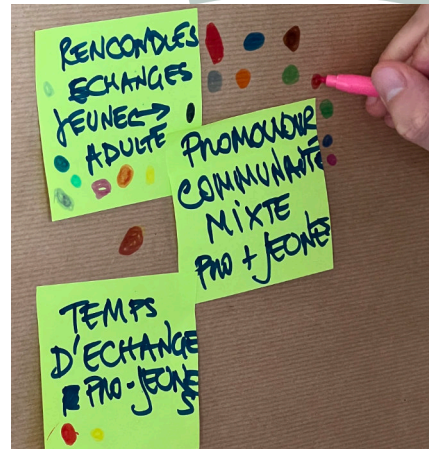 RENCONDLES
ECHANGES
JEUNE ↔
ADULTE
PROMOUVOIR
COMMUNAUTÉ
MIXTE
PRO + JEUNES
TEMPS
D'ECHANGE
PRO-JEUNES